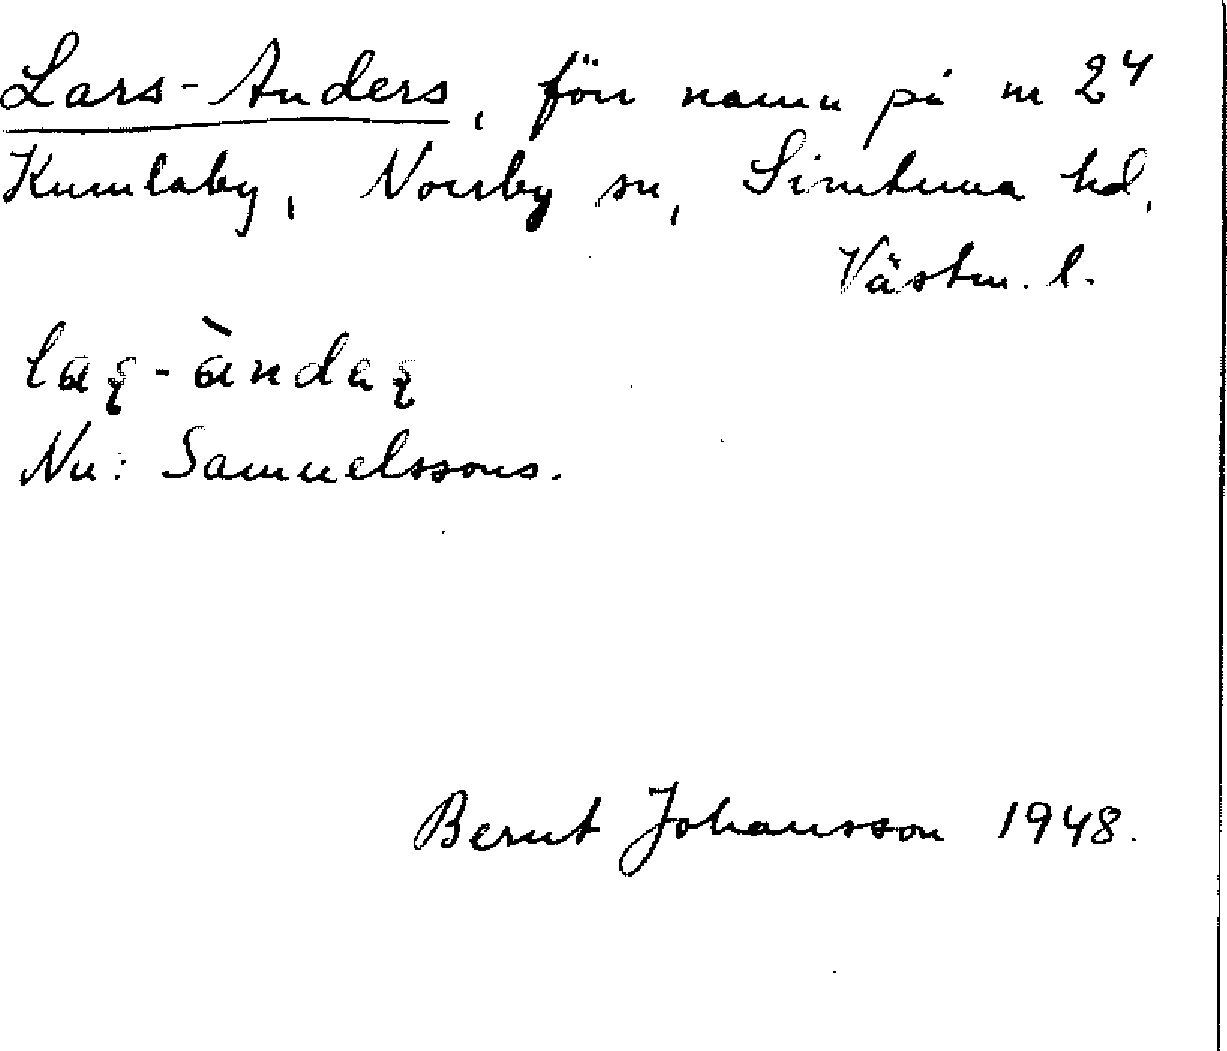 Lars-Anders, förr namn på nr 2⁴
Kumlaby, Norrby sn, Simtuna hd,
Västm. l.
Nu: Samuelssons.
Bernt Johansson 1948.